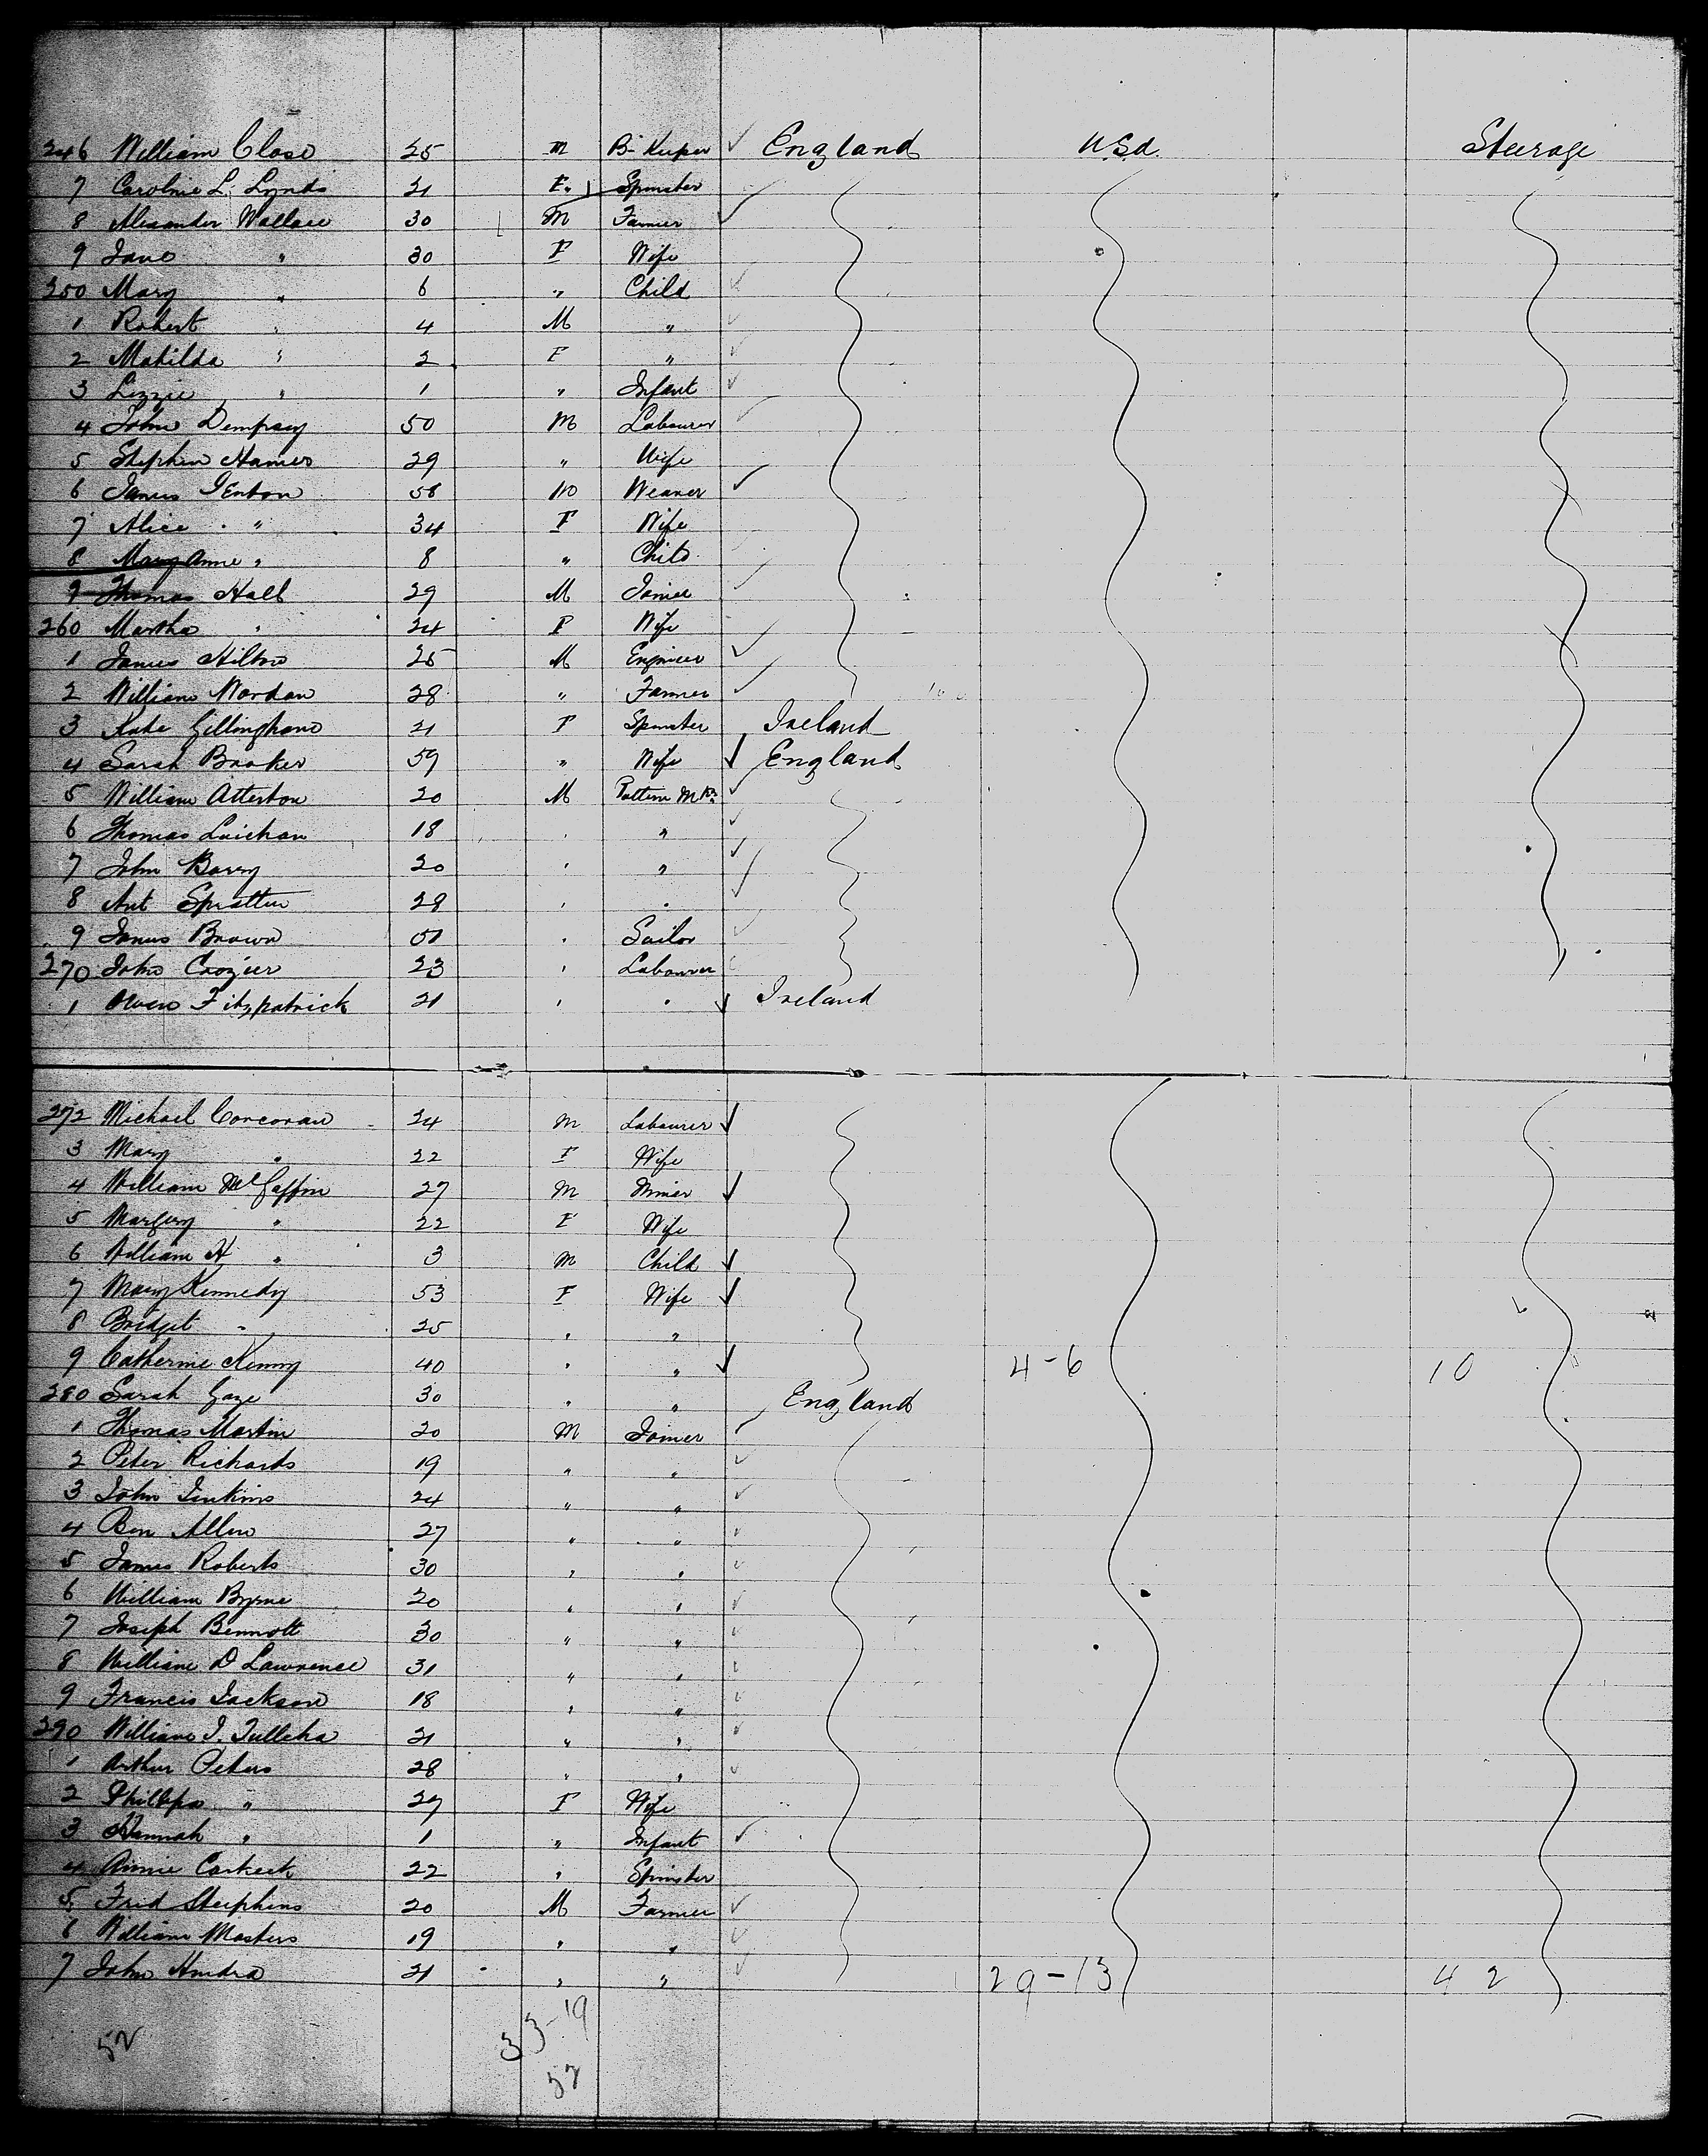 246 William Close 25 M B. Keeper ✓ England U.S.A. Steerage
7 Caroline L. Lynds 21 F. Spinster
8 Alexander Wallace 30 M Farmer ✓
9 Jane " 30 F Wife
250 Mary " 6 " Child ✓
1 Robert " 4 M " ✓
2 Matilda " 2 F " ✓
3 Lizzie " 1 " Infant ✓
4 John Dempsey 50 M Labourer ✓
5 Stephen Hames 29 " Wife
6 James 58 M Weaver ✓
7 Alice " 34 F Wife
8 Mary Anne " 8 " Child
9 Thomas Hall 29 M Joiner ✓
260 Martha " 24 F Wife
1 James Hilton 25 M Engineer ✓
2 William Wordan 28 " Farmer ✓
3 Kate Gillingham 21 F Spinster Ireland
4 Sarah Brooker 59 " Wife ✓ England
5 William Atterton 20 M Pattern Mkr ✓
6 Thomas 18 " " ✓
7 John Barry 20 " " ✓
8 Ant Spratten 28 " " ✓
9 James Brown " Sailor ✓
270 John Crozier 23 " Labourer
1 Owen Fitzpatrick 21 " " ✓ Ireland
272 Michael Corcoran 24 M Labourer ✓
3 Mary " 22 F Wife
4 William McGaffin 27 M Miner ✓
5 Margery " 22 F Wife
6 William H " 3 M Child ✓
7 Mary Kennedy 53 F Wife ✓
8 Bridget " 25 " "
9 Catherine Kenny 40 " " ✓ 4-6 10
280 Sarah Gaze 30 " " England
1 Thomas Martin 20 M Joiner ✓
2 Peter Richards 19 " " ✓
3 John Jenkins 24 " " ✓
4 Ben Allen 27 " " ✓
5 James Roberts 30 " " ✓
6 William Byrne 20 " " ✓
7 Joseph Bennett 30 " " ✓
8 William D Lawrence 31 " " ✓
9 Francis Jackson 18 " " ✓
290 William J. 21 " " ✓
1 Arthur Peters 28 " " ✓
2 Phillipa " 27 F Wife
3 Hannah " 1 " Infant ✓
4 Annie Carkeek 22 " Spinster
5 Fred Stephens 20 M Farmer ✓
6 William Masters 19 " " ✓
7 John Hendra 21 " " ✓ 29-13 42
33-19
52 52